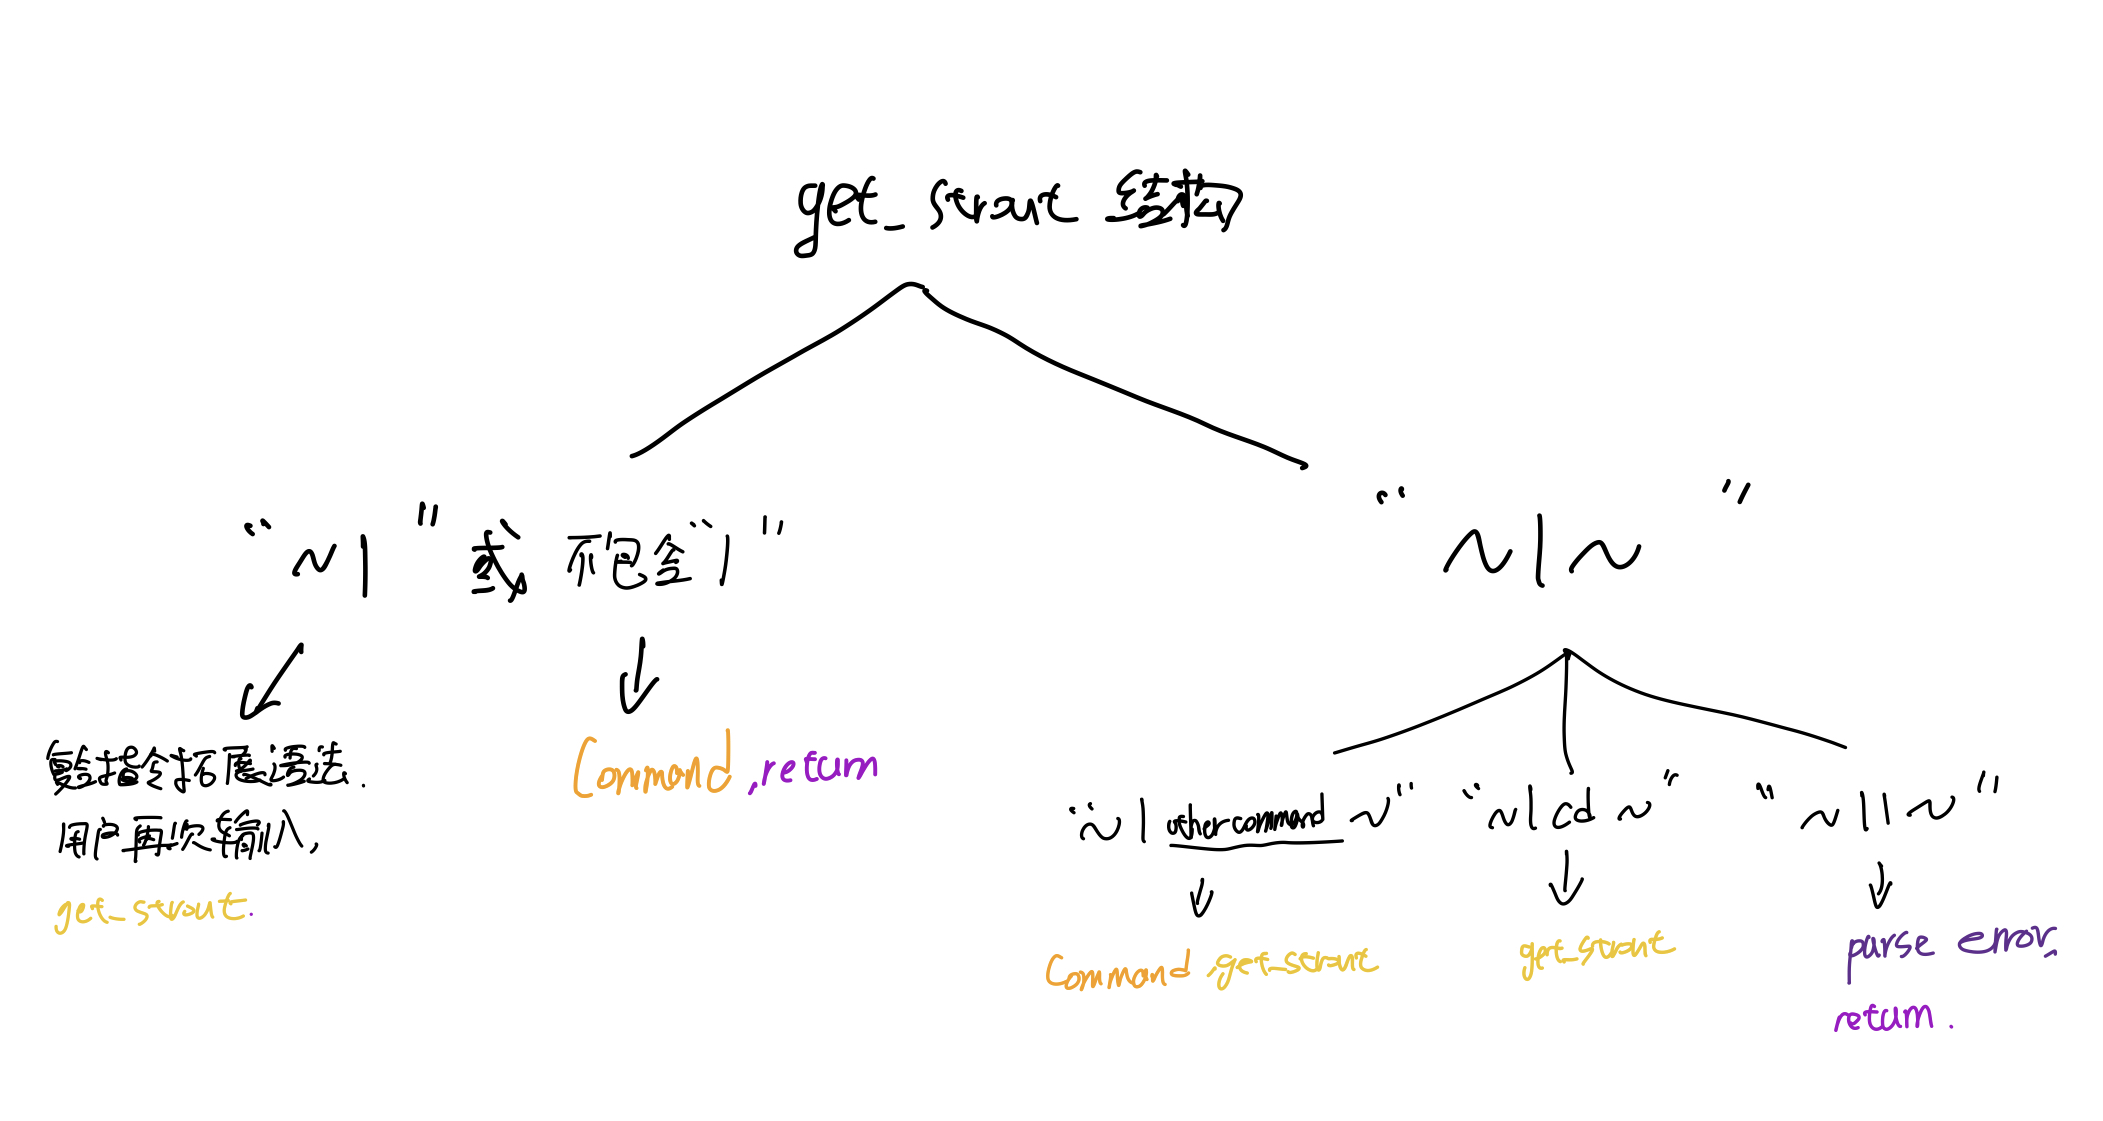 get_strout 结构
“~|” 或 不包含“|”
“~|~”
复合指令拓展语法.
用户再次输入,
get_strout.
Command,return
“~|othercommand~”
“~|cd~”
“~||~”
Command,get_strout
get_strout
parse error,
return.